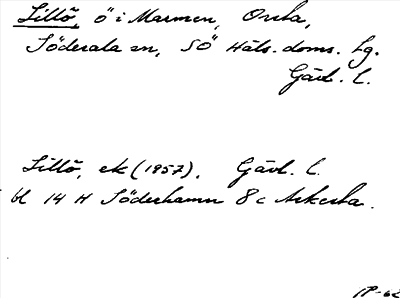 Lillö, ö i Marmen, Orsta,
Söderala sn, SÖ Häls. doms. Lg.
Gävl. l.
Lillö, ek (1957). Gävl. l.
bl 14 H Söderhamn 8 c Askesta.
IP-62